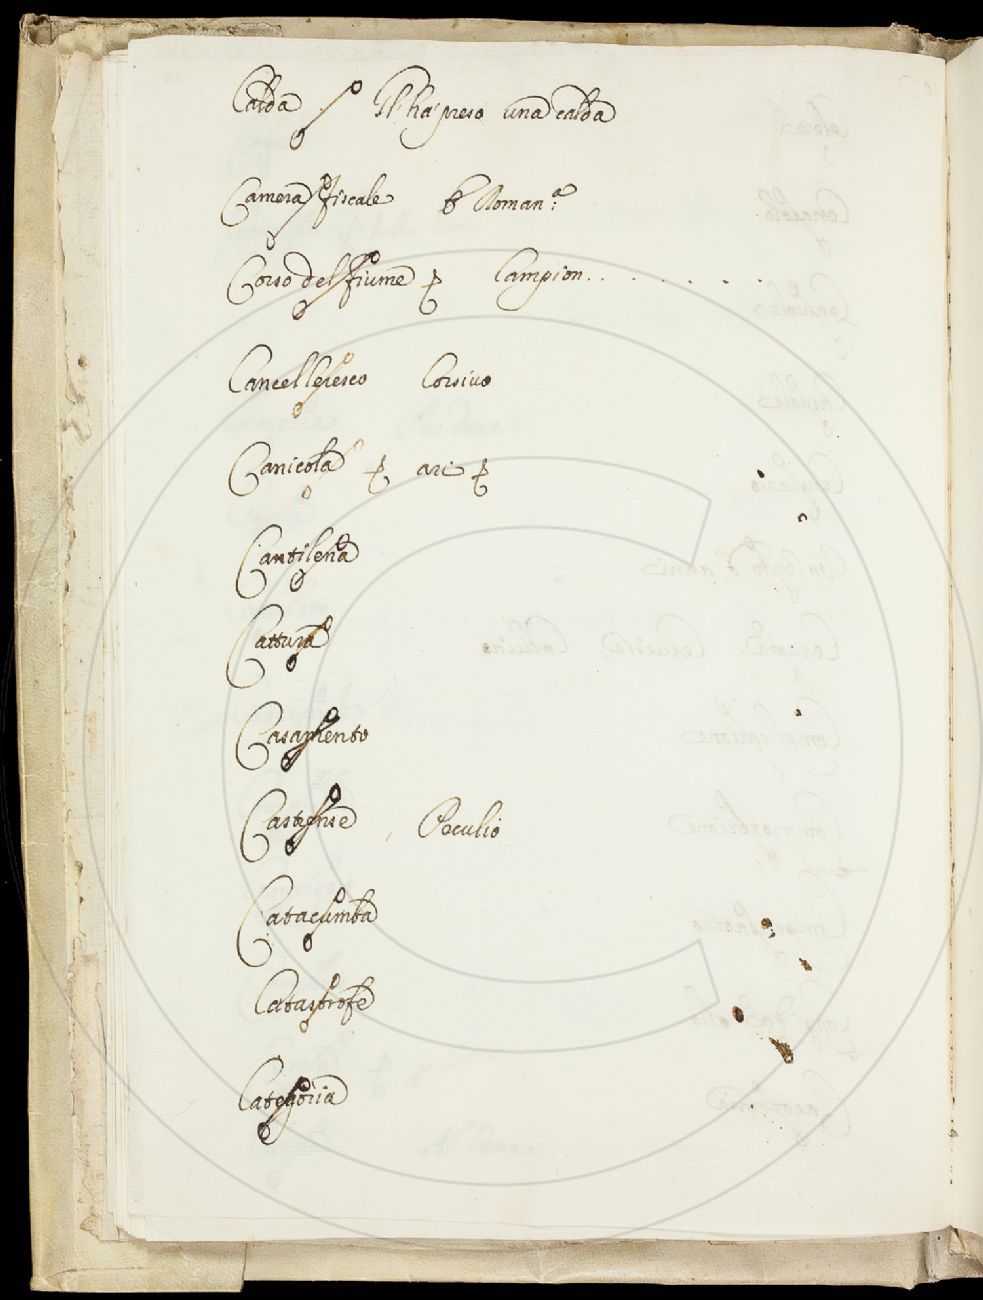 Calda Il ha preso una calda
Camera fiscale b Roman.ª
Corso del fiume p Campion........
Cancelleresco Corsivo
Canicola p ari p
Cantilena
Cattura
Casamento
Castrense Peculio
Catacumba
Catastrofe
Categoria